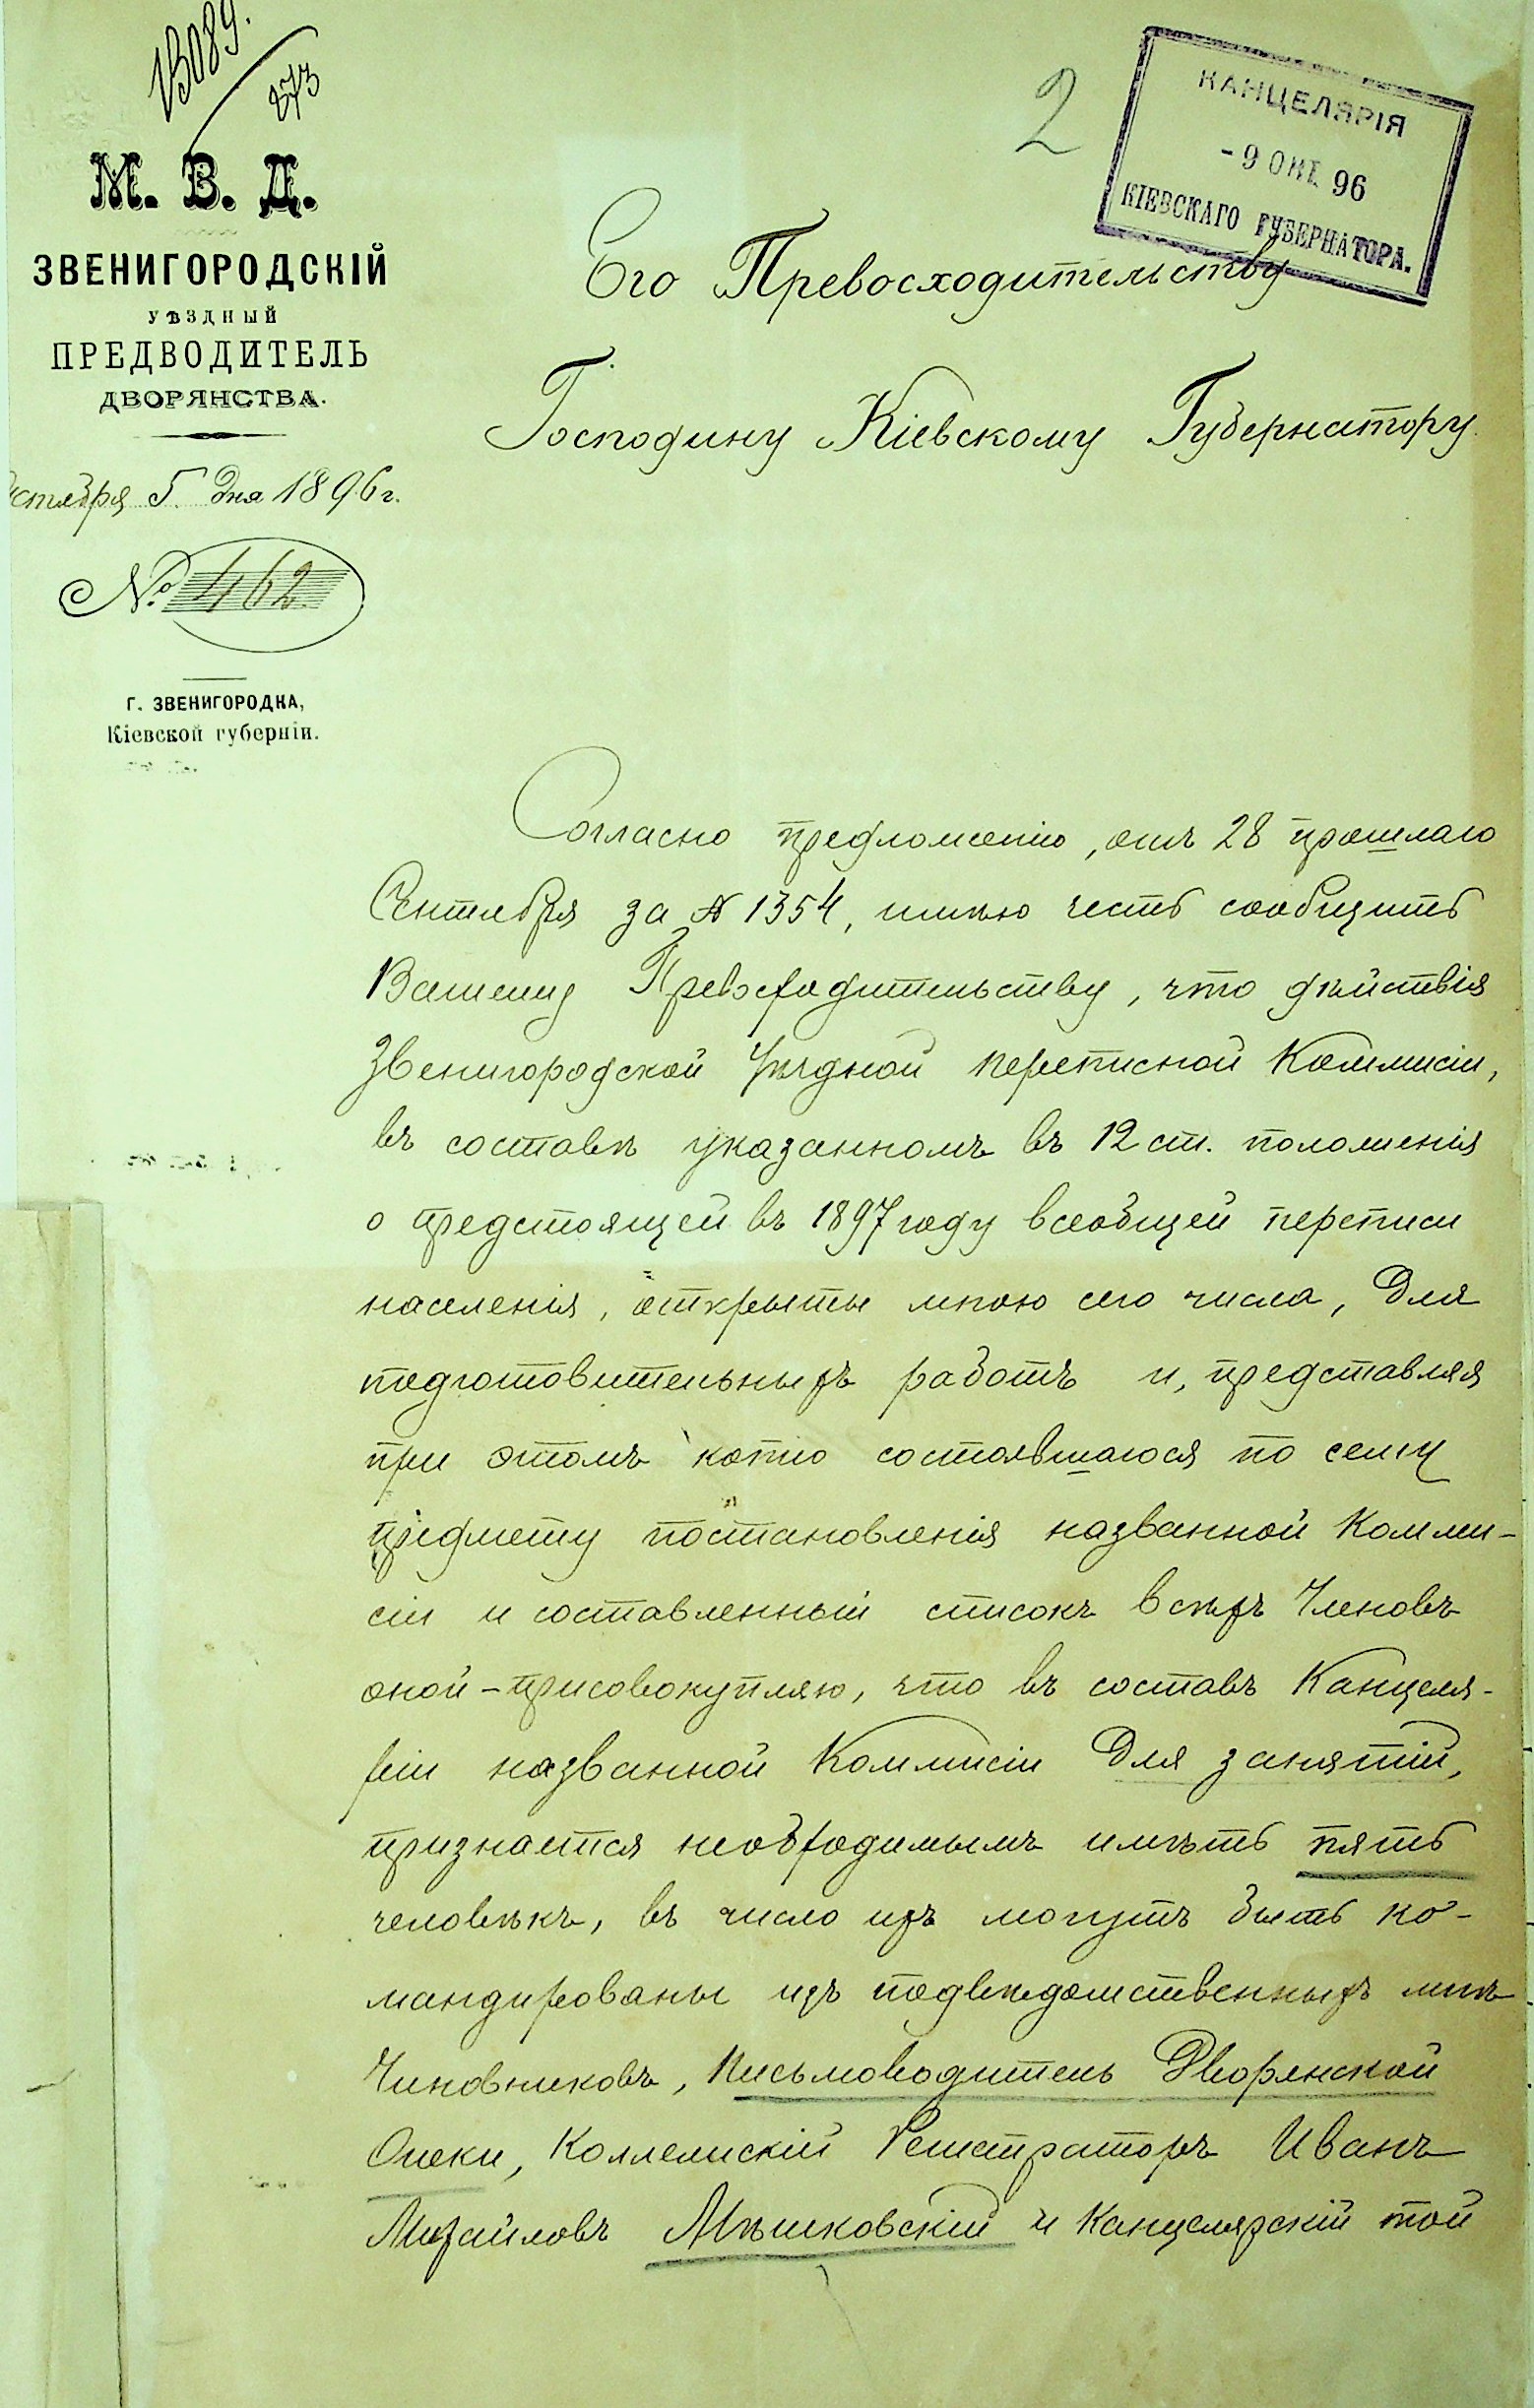 13089.
273
М. В. Д.
ЗВЕНИГОРОДСКІЙ
УѢЗДНЫЙ
ПРЕДВОДИТЕЛЬ
ДВОРЯНСТВА.
Октября 5 дня 1896 г.
№ 462
Г. ЗВЕНИГОРОДКА,
Кіевской губерніи.
2
КАНЦЕЛЯРІЯ
- 9 ОКТ. 96
КІЕВСКАГО ГУБЕРНАТОРА.
Его Превосходительству
Господину Кіевскому Губернатору
Согласно предложенію, отъ 28 прошлаго
Сентября за № 1354, имѣю честь сообщить
Вашему Превосходительству, что дѣйствія
Звенигородской Уѣздной переписной Коммисіи,
въ составѣ указанномъ въ 12 ст. положенія
о предстоящей въ 1897 году всеобщей переписи
населенія, открыты мною сего числа, для
подготовительныхъ работъ и, представляя
при этомъ копію состоявшагося по сему
предмету постановленія названной Комми-
сіи и составленный списокъ всѣхъ Членовъ
оной - присовокупляю, что въ составъ Канцеля-
ріи названной Коммисіи для занятій,
признается необходимымъ имѣть пять
человѣкъ, въ число ихъ могутъ быть ко-
мандированы изъ подвѣдомственныхъ мнѣ
Чиновниковъ, Письмоводитель Дворянской
Опеки, Коллежскій Регистраторъ Иванъ
Михайловъ Мѣшковскій и Канцелярскій той